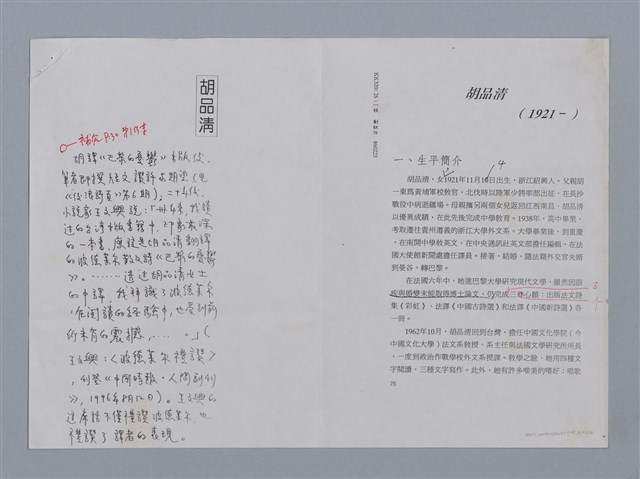 胡品清
胡品清
(1921－)
一、生平簡介
14
胡品清,女1921年11月10日出生,浙江紹興人。父親胡
一東爲黃埔軍校教官,北伐時以陸軍少將率部出征,在長沙
戰役中病逝疆場。母親攜另兩個女兒返回江西南昌,胡品清
以優異成績,在此先後完成中學教育。1938年,高中畢業,
考取遷往貴州遵義的浙江大學外文系。大學畢業後,到重
慶,在南開中學教英文,在中央通訊社英文部擔任編輯,在法
國大使館新聞處擔任譯員。接著,結婚,隨法籍外交官夫婿
到曼谷,轉巴黎。
在法國六年中,她進巴黎大學研究現代文學,雖然因眼
疾與婚變未能取得博士論文,仍完成三樁心願:出版法文詩
集《彩虹》、法譯《中國古詩選》和法譯《中國新詩選》各
一冊。
1962年10月,胡品清回到台灣,擔任中國文化學院(今
中國文化大學)法文系教授、系主任與法國文學研究所所長
,一度到政治作戰學校外文系授課。教學之餘,她用四種文
字閱讀,三種文字寫作。此外,她有許多唯美的嗜好:唱歌
胡譯《巴黎的憂鬱》出版後,
筆者即撰短文讚許與期望(見
《後浪詩頁》第6期);二十多年後,
小說家王文興說:「卅年來,我讀
過的台灣出版書籍中,印象最深
的一本書,應該是胡品清翻譯
的波德萊爾散文詩《巴黎的憂鬱
》。……透過胡品清女士
的中譯,我拜識了波德萊爾
,在閱讀的經驗中,也受到前
所未有的震撼,……。」(
王文興:〈波德萊爾禮讚〉
,刊登《中國時報‧人間副刊
》,1996年8月12日)。王文興的
這席話不僅禮讚波德萊爾,也
禮讚了譯者的表現。